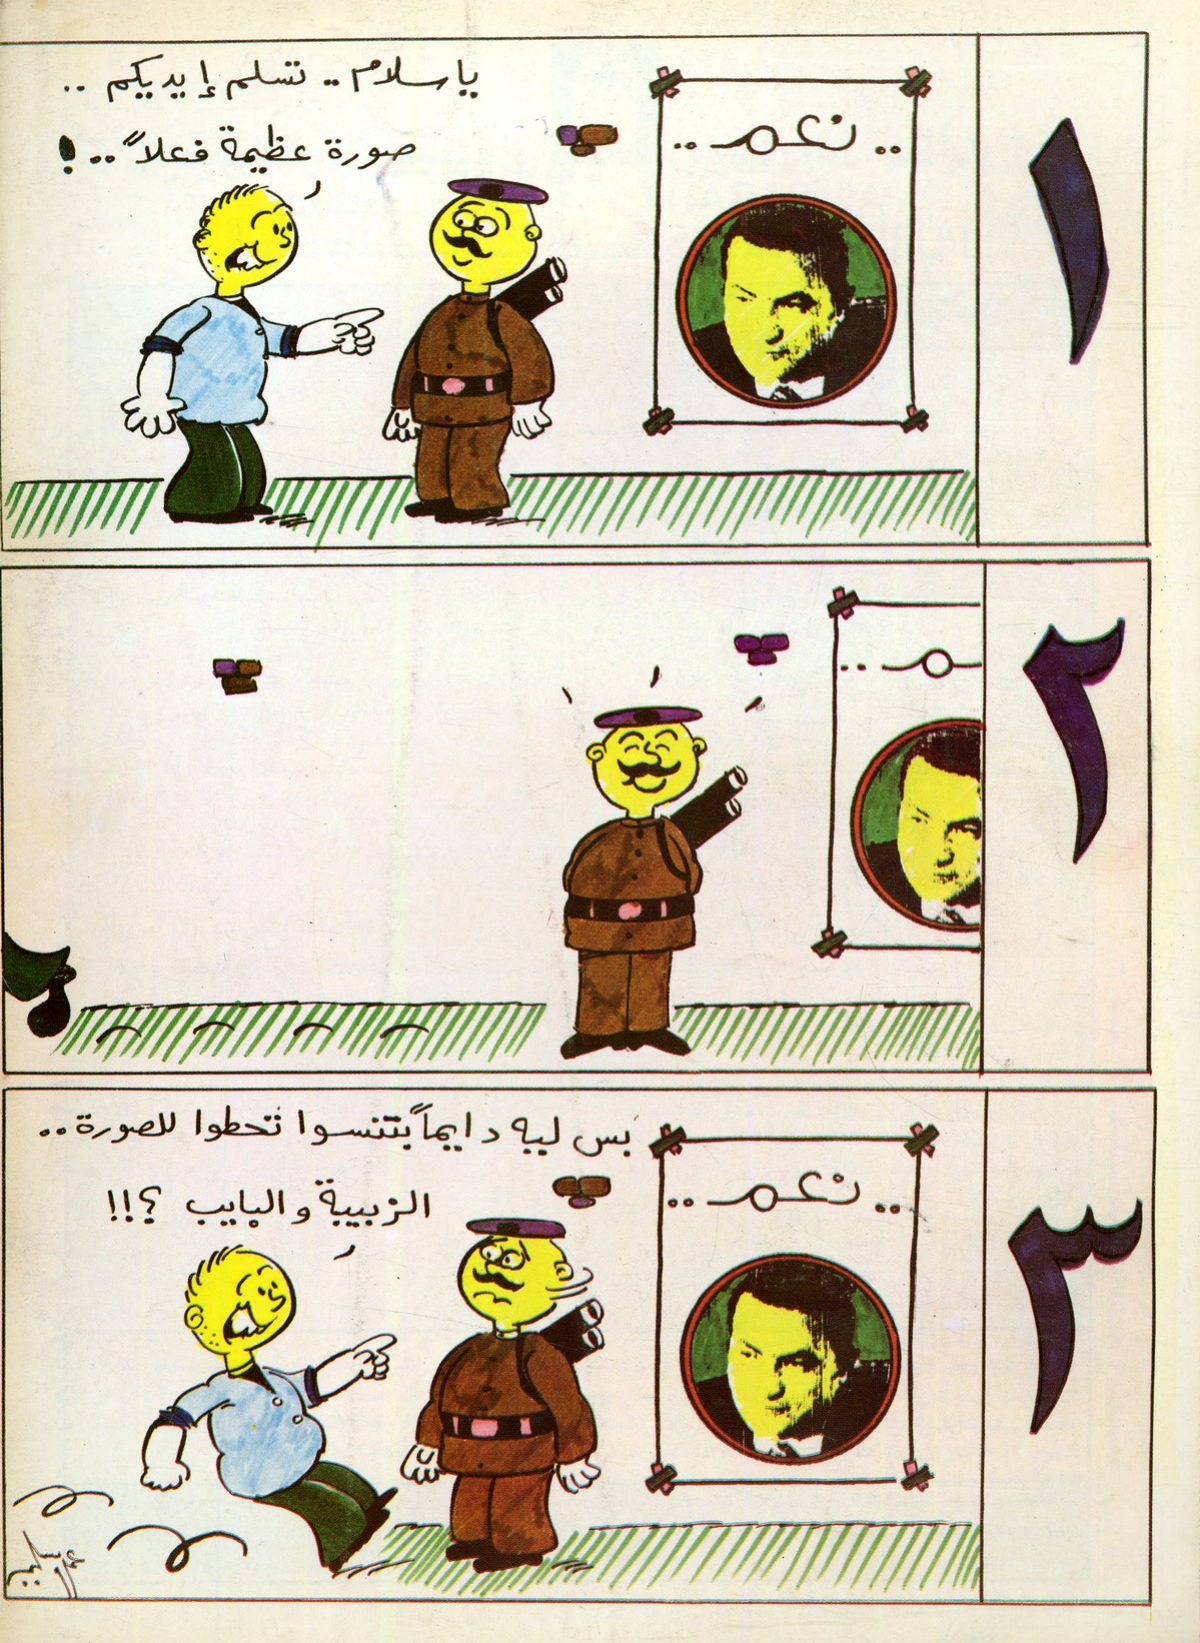 ١
ياسلام.. تسلم إيديكم ..
صورة عظيمة فعلاً..!
.. نعم ..
٢
٣
بس ليه دايماً بتنسوا تحطوا للصورة..
الزبيبة والبايب ؟!!
.. نعم ..